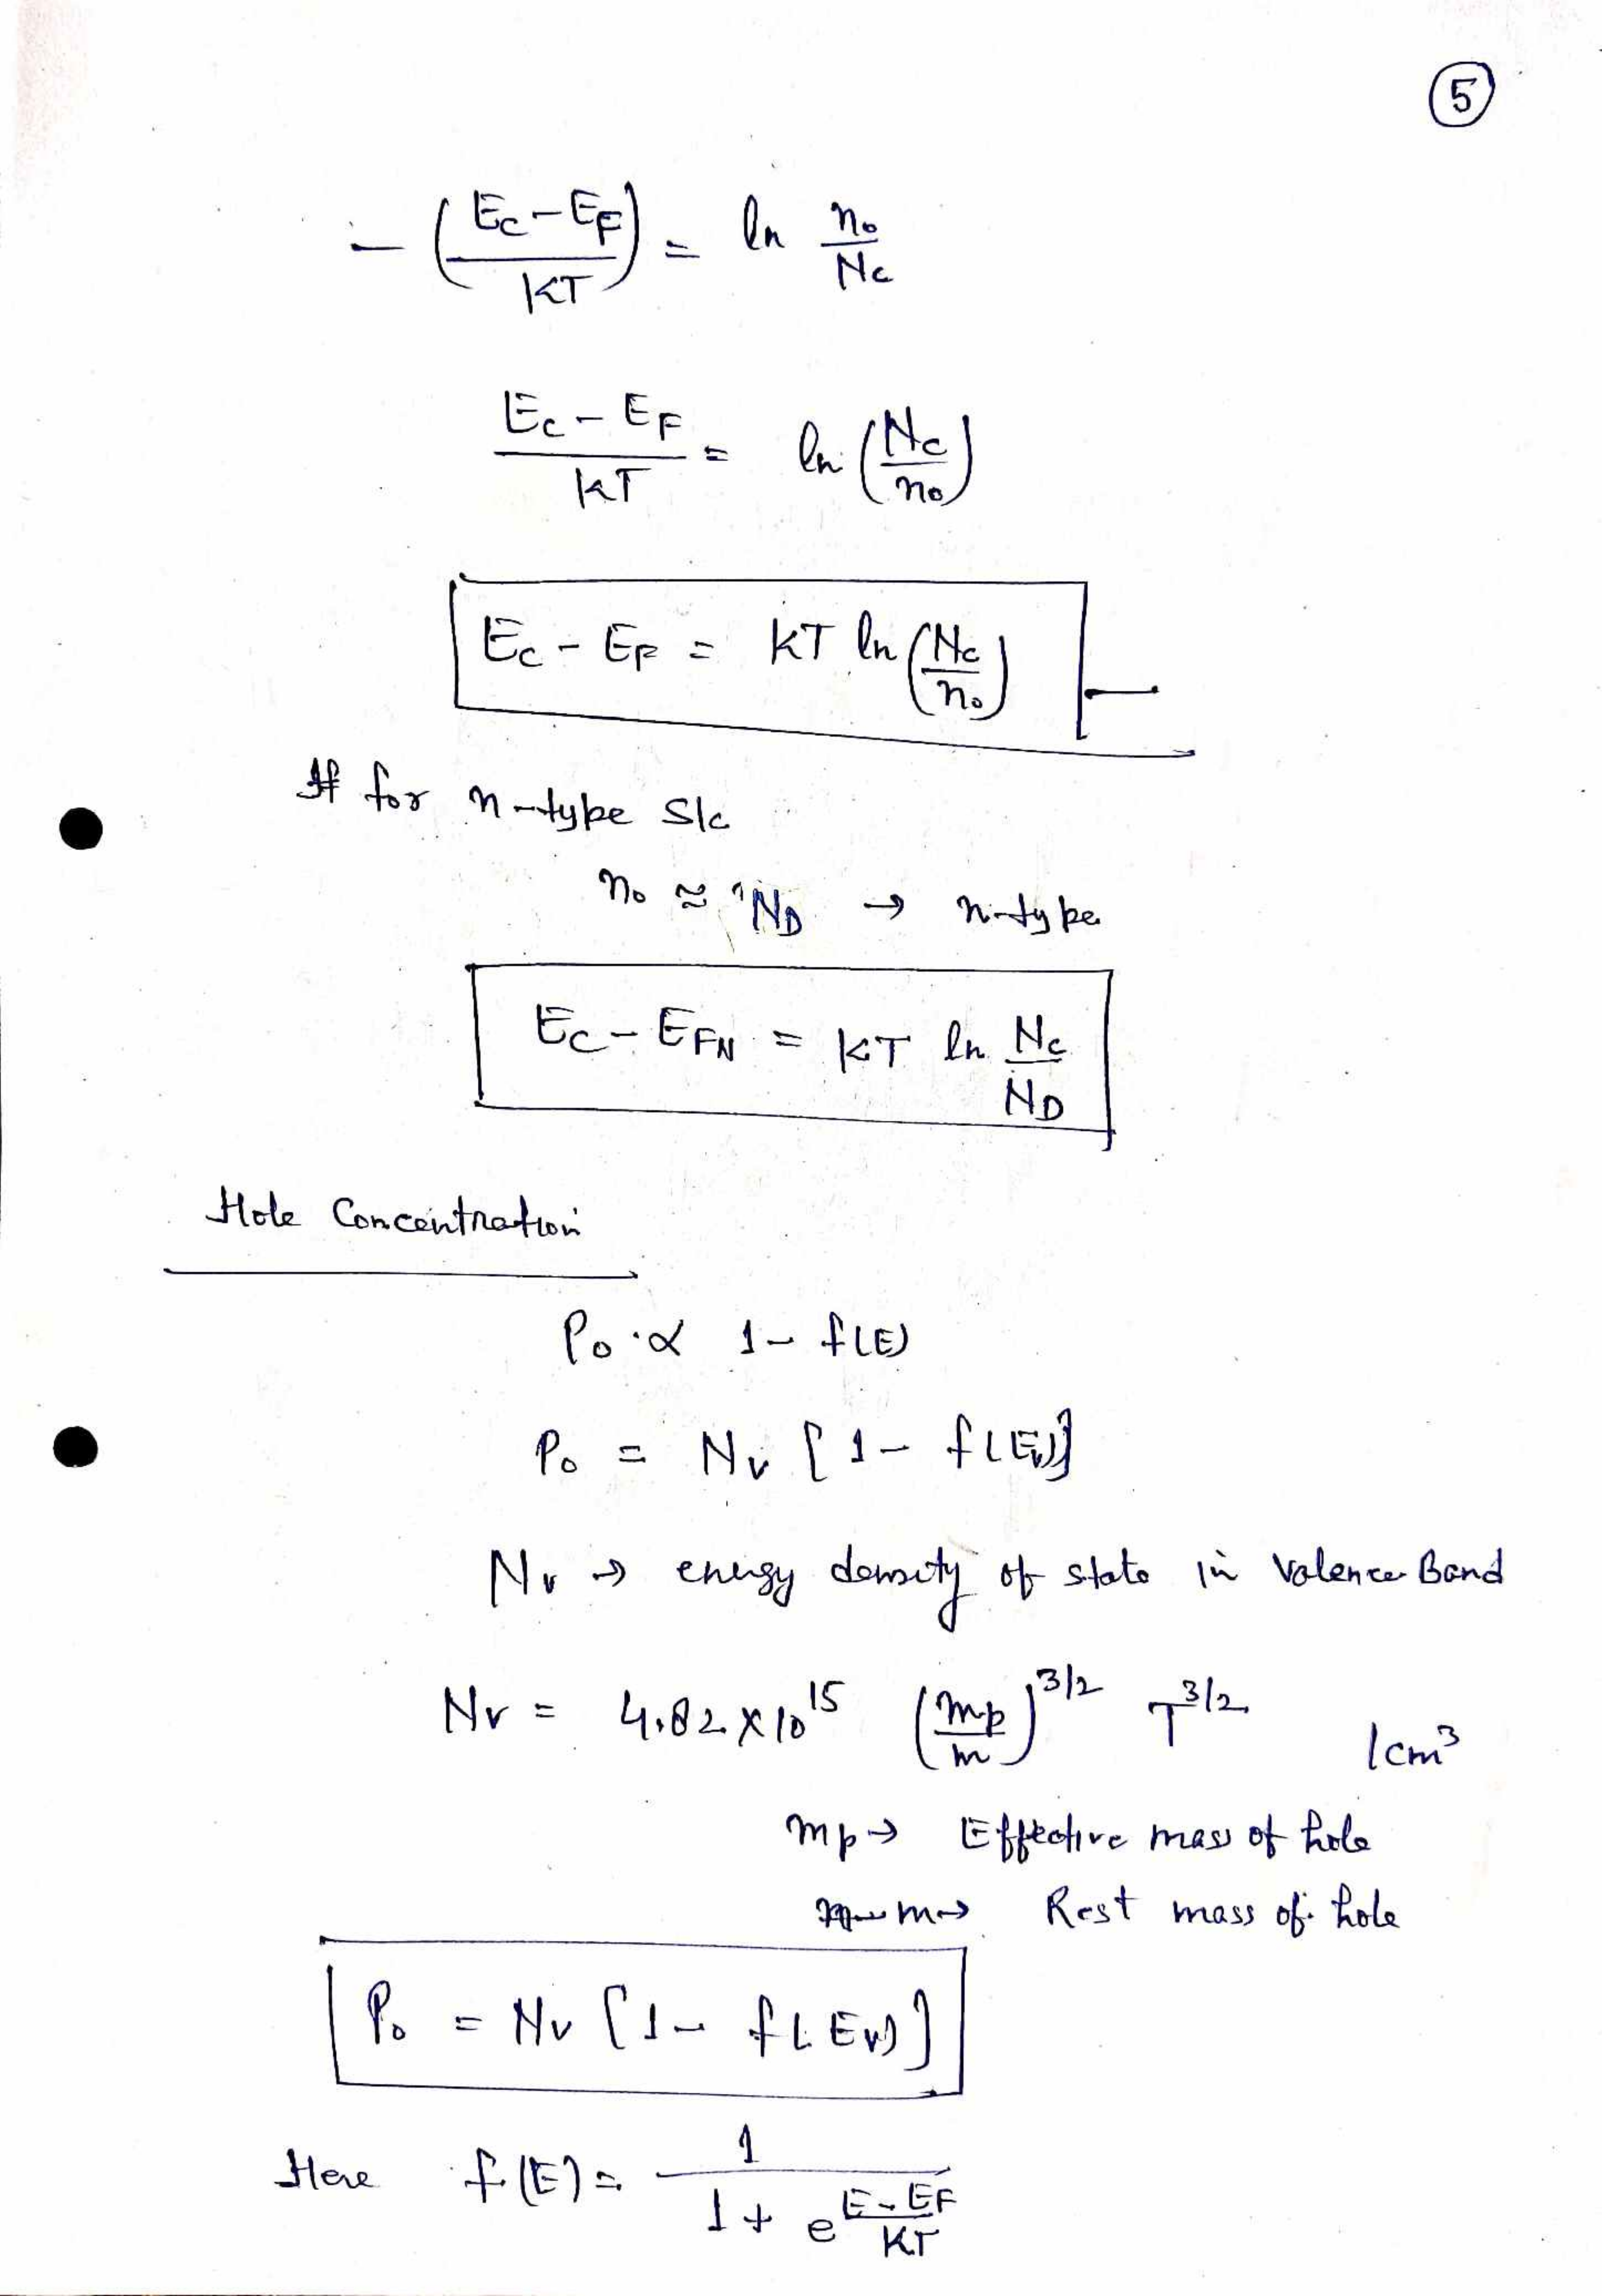 5
- (E_C - E_F / KT) = ln n_o / N_c
E_C - E_F / KT = ln (N_c / n_o)
E_C - E_F = KT ln (N_c / n_o)
If for n-type S/c
n_o ≈ N_D → n-type
E_C - E_FN = KT ln N_c / N_D
Hole Concentration
P_o ∝ 1 - f(E)
P_o = N_v [1 - f(E_v)]
N_v → energy density of state in Valence Band
N_v = 4.82 × 10^15 (m_p / m)^3/2 T^3/2 /cm^3
m_p → Effective mass of hole
m → Rest mass of hole
P_o = N_v [1 - f(E_v)]
Here f(E) = 1 / 1 + e^(E - E_F / KT)